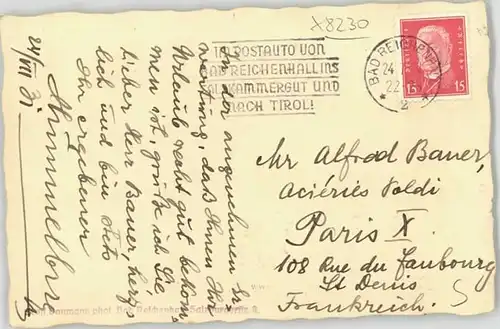 X8230
IM POSTAUTO VON
BAD REICHENHALL INS
SALZKAMMERGUT UND
NACH TIROL!
BAD REICHENHALL
24
22
2
DEUTSCHES REICH
15 15
24/VII 31.
In der angenehmen Er-
wartung, daß Ihnen Ihr
Urlaub recht gut bekom-
men ist, grüße ich Sie
lieber Herr Bauer, herz-
lich und bin stets
Ihr ergebener
Mr Alfred Bauer,
Aciéries Poldi
Paris X.
108 Rue du Faubourg
St Denis
Frankreich.
Baumann phot. Bad Reichenhall